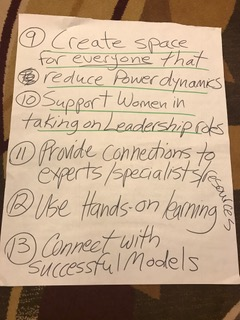 9 Create space
for everyone that
reduce Power dynamics
10 Support Women in
taking on Leadership roles
11 Provide connections to
experts/specialists/resources
12 Use Hands-on learning
13 Connect with
successful Models